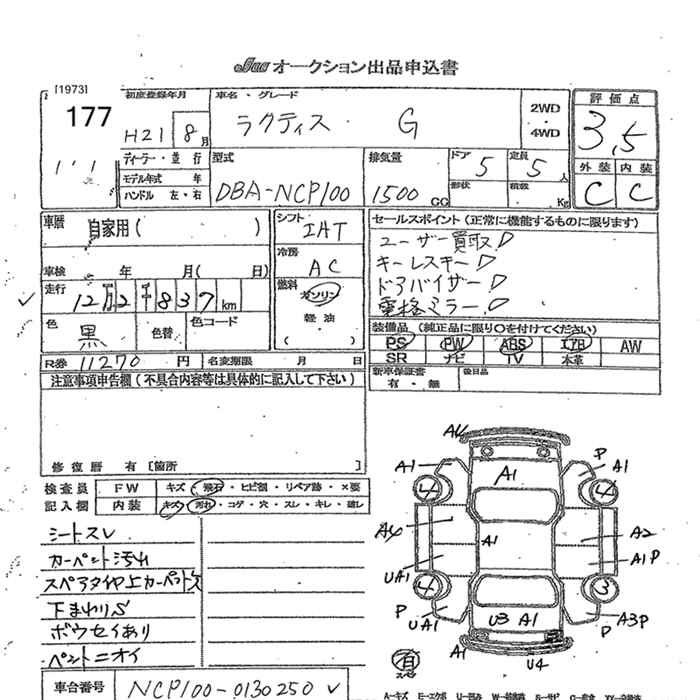 JAA オークション出品申込書
[1973]
177
初度登録年月
H21 8月
車名・グレード
ラクティス G
2WD
4WD
評価点
3.5
ディーラー・並行
モデル年式 年
ハンドル 左・右
型式
DBA-NCP100
排気量
1500 CC
ドア 5
形状
定員 5 人
積載 Kg
外装 内装
C C
車歴
自家用( )
シフト
IAT
セールスポイント(正常に機能するものに限ります)
ユーザー買取
キーレスキー
ドアバイザー
電格ミラー
冷房
AC
車検 年 月( 日)
走行 12万2千837km
燃料
ガソリン
軽油
( )
色 黒
色替
色コード
装備品(純正品に限り○を付けてください)
PS PW ABS エアB AW
SR ナビ TV 本革
R券 11270 円
名変期限 月 日
新車保証書
有・無
後日品
注意事項申告欄(不具合内容等は具体的に記入して下さい)
修復歴 有 [箇所 ]
検査員
記入欄
FW キズ・飛石・ヒビ割・リペア跡・×要
内装 キズ・汚れ・コゲ・穴・スレ・キレ・破レ
シートスレ
カーペット汚れ
スペアタイヤ上カーペット欠
下まわりS
ボウセイあり
ペットニオイ
車台番号 NCP100-0130250
A4
A1 P A1
A1
4 4
A4 A1 A2
UA1 A1 P
4 3
P UA1 U3 A1 A3P P
A1 U4
有
スペア